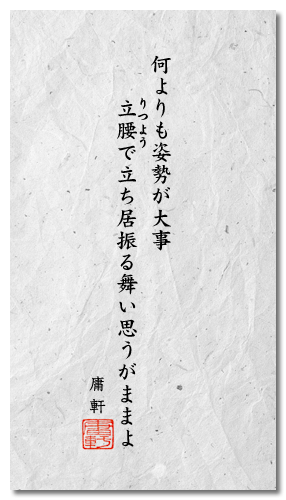 何よりも姿勢が大事
りつよう
立腰で立ち居振る舞い思うがままよ
庸軒
庸軒